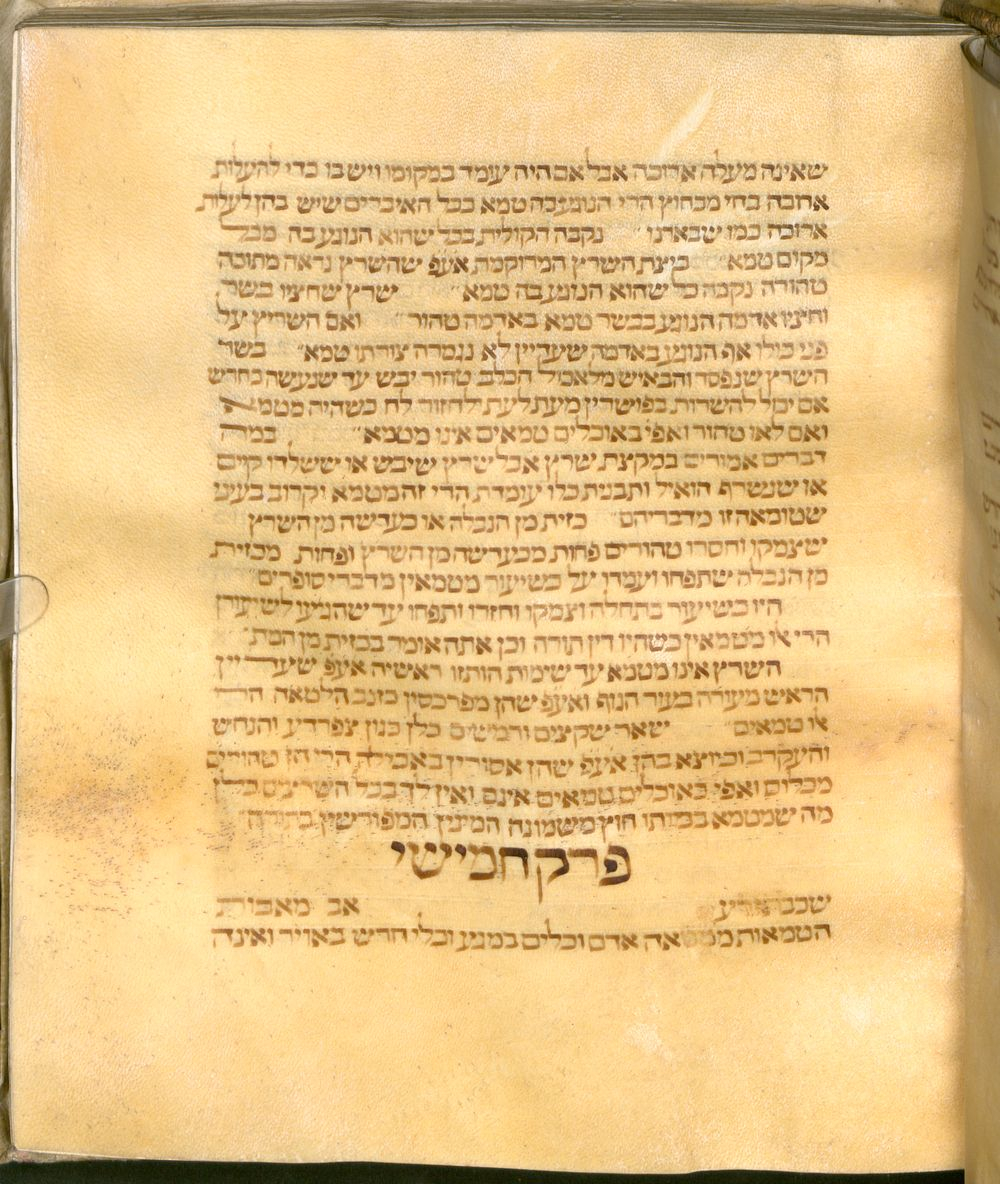 שאינה מעלה ארוכה אבל אם היה עומד במקומו ויש בו כדי להעלות
ארוכה בחי מבחוץ הרי הנוגע בה טמא ככל האיברים שיש בהן לעלות
ארוכה כמו שבארנו״ נקבה הקולית בכל שהוא הנוגע בה מכל
מקום טמא״ ביצת השרץ המרוקמת אעפ שהשרץ נראה מתוכה
טהורה נקבה כל שהוא הנוגע בה טמא״ שרץ שחציו בשר
וחציו אדמה הנוגע בבשר טמא באדמה טהור״ ואם השריץ על
פני כולו אף הנוגע באדמה שעדיין לא נגמרה צורתו טמא״ בשר
השרץ שנפסד והבאיש מלאכול הכלב טהור יבש עד שנעשה כחרש
אם יכול להשרות בפושרין מעת לעת ולחזור לח כשהיה מטמא
ואם לאו טהור ואפי באוכלים טמאים אינו מטמא״ במה
דברים אמורים במקצת שרץ אבל שרץ שיבש או ששלדו קיים
או שנשרף הואיל ותבנית כלו עומדת הרי זה מטמא וקרוב בעיני
שטומאה זו מדבריהם״ כזית מן הנבלה או כעדשה מן השרץ
שצמקו וחסרו טהורים פחות מכעדשה מן השרץ ופחות מכזית
מן הנבלה שתפחו ועמדו על כשיעור מטמאין מדברי סופרים״
היו כשיעור בתחלה וצמקו וחזרו ותפחו עד שהגיעו לשיעורן
הרי אלו מטמאין כשהיו דין תורה וכן אתה אומר בכזית מן המת״
השרץ אינו מטמא עד שימות הותזו ראשיה אעפ שעדיין
הראש מעורה בעור הגוף ואעפ שהן מפרכסין כזנב הלטאה הרי
אלו טמאים״ שאר שקצים ורמשים כלן כגון צפרדע והנחש
והעקרב וכיוצא בהן אעפ שהן אסורין באכילה הרי הן טהורים
מכלום ואפי באוכלים טמאים אינם ואין לך בכל השרצים כולן
מה שמטמא במותו חוץ משמונה המינין המפורשין בתורה״
פרק חמישי
שכבת זרע אב מאבות
הטמאות מטמאה אדם וכלים במגע וכלי חרש באויר ואינה